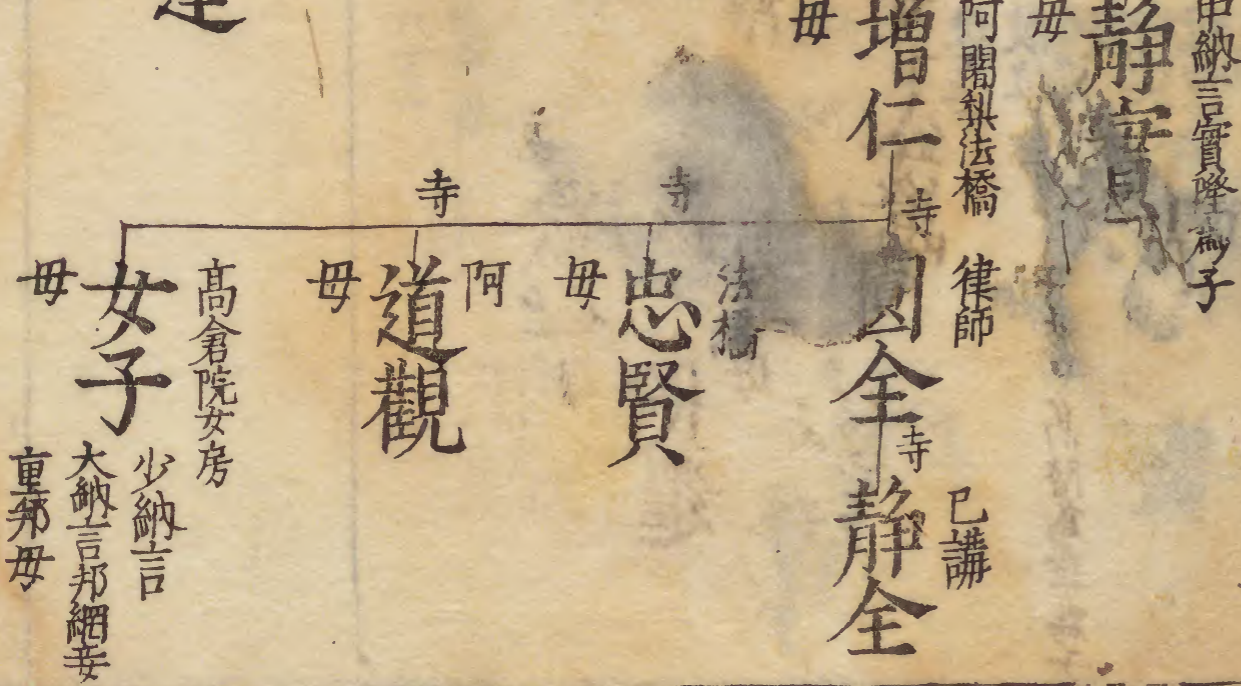 中納言實隆卿子
静實
母
阿闍梨法橋
増仁
母
寺
律師
因全
寺
已講
静全
寺
法橋
忠賢
母
寺
阿
道觀
母
高倉院女房
女子
母
少納言
大納言邦綱妾
重邦母